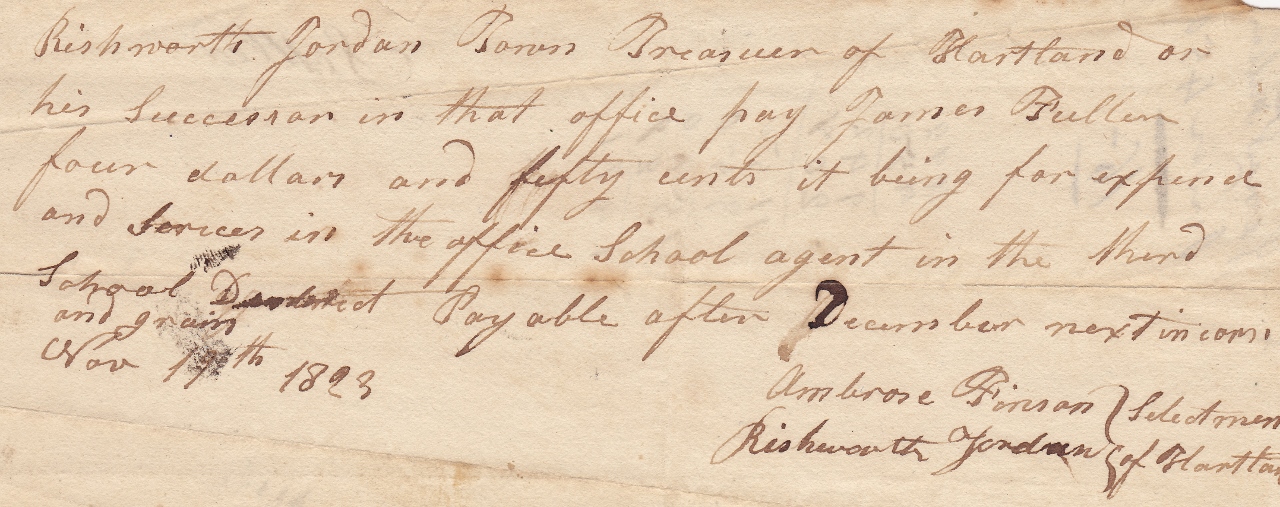 Rishworth Jordan Town Treasuer of Hartland or
his Successor in that office pay James Fuller
four dollars and fifty cents it being for expence
and Servces in the office School agent in the third
School District Payable after December next in corn
and grain
Nov 17th 1823
Ambrose Finson } Selectmen
Rishworth Jordan } of Hartlan